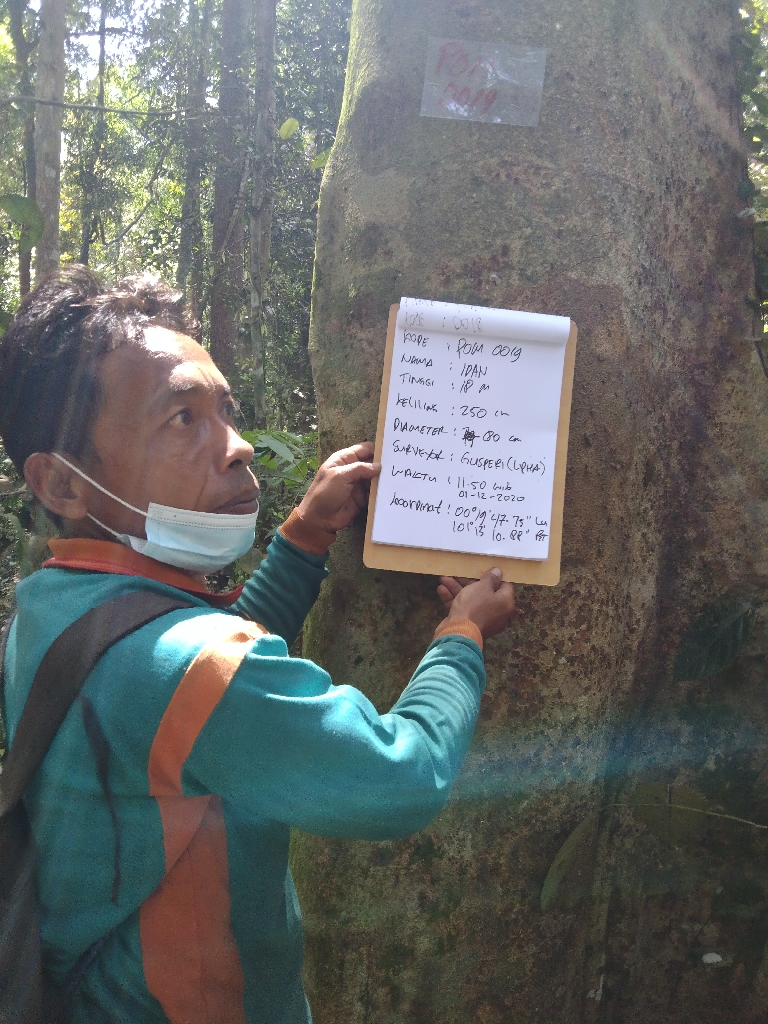 POM
0019
0018
KODE : POM 0019
NAMA : IDAN
TINGGI : 18 m
KELILING : 250 cm
DIAMETER : 80 cm
SURVEYOR : GUSPERI (LPHA)
WAKTU : 11.50 WIB
01-12-2020
koordinat : 00°19' 47.75" LU
101°13' 10.88" BT